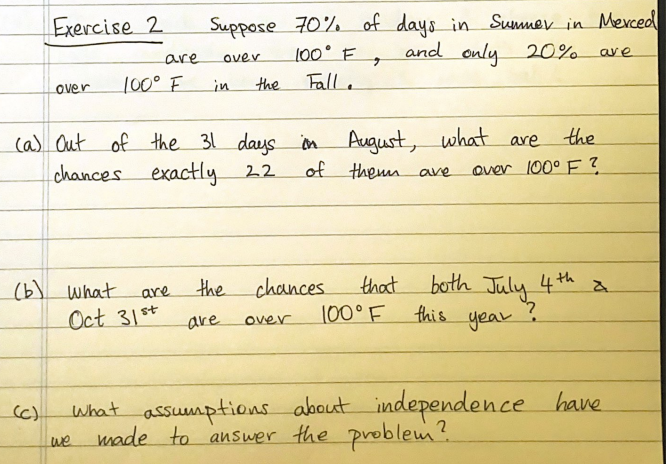 Exercise 2 Suppose 70% of days in Summer in Merced
are over 100° F, and only 20% are
over 100° F in the Fall.
(a) Out of the 31 days in August, what are the
chances exactly 22 of them are over 100° F?
(b) What are the chances that both July 4th &
Oct 31st are over 100° F this year?
(c) What assumptions about independence have
we made to answer the problem?